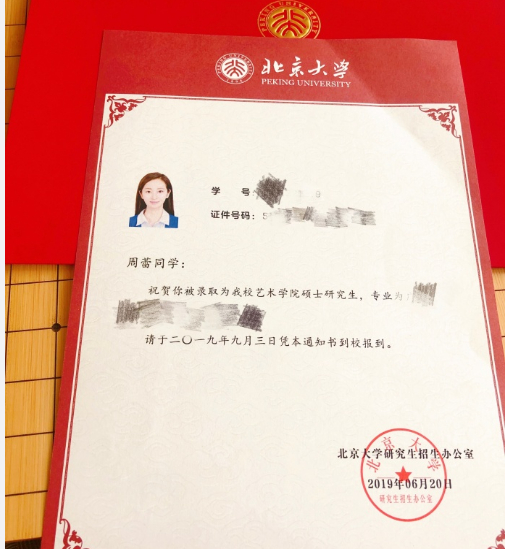 北京大学
PEKING UNIVERSITY
学 号
证件号码：
周蕾同学：
祝贺你被录取为我校艺术学院硕士研究生，专业为
请于二〇一九年九月三日凭本通知书到校报到。
北京大学研究生招生办公室
2019年06月20日
北京大学
研究生招生办公室